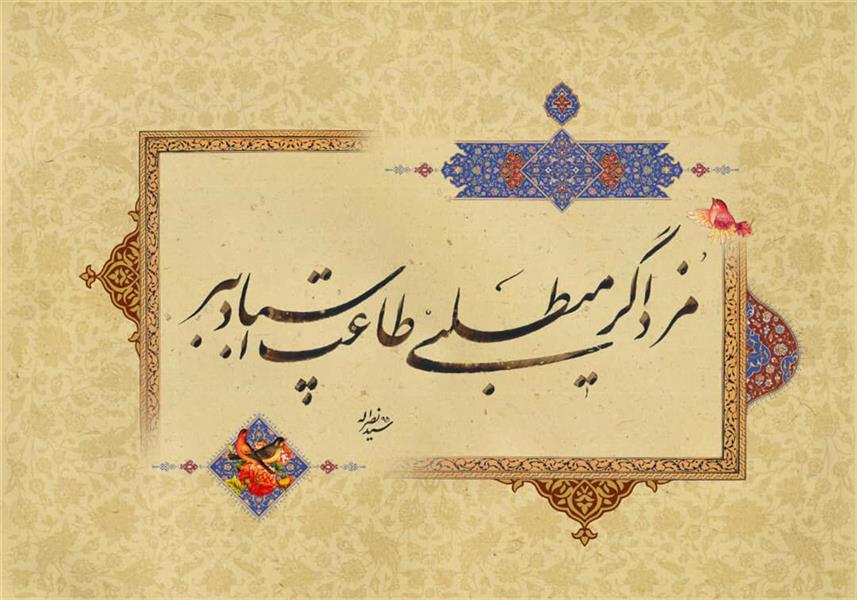 مزد اگر میطلبی طاعت استاد ببر
سید نصراله ۹۸